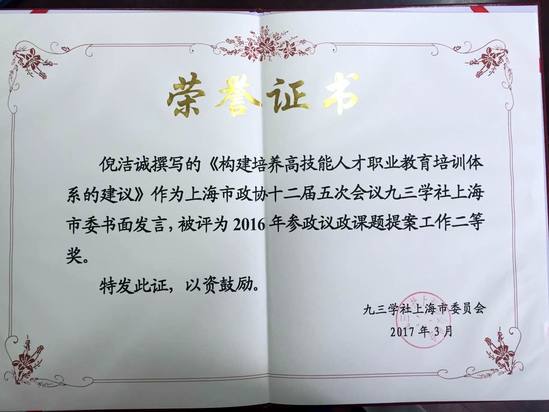 荣誉证书
倪洁诚撰写的《构建培养高技能人才职业教育培训体
系的建议》作为上海市政协十二届五次会议九三学社上海
市委书面发言，被评为 2016 年参政议政课题提案工作二等
奖。
特发此证，以资鼓励。
九三学社上海市委员会
2017 年 3 月